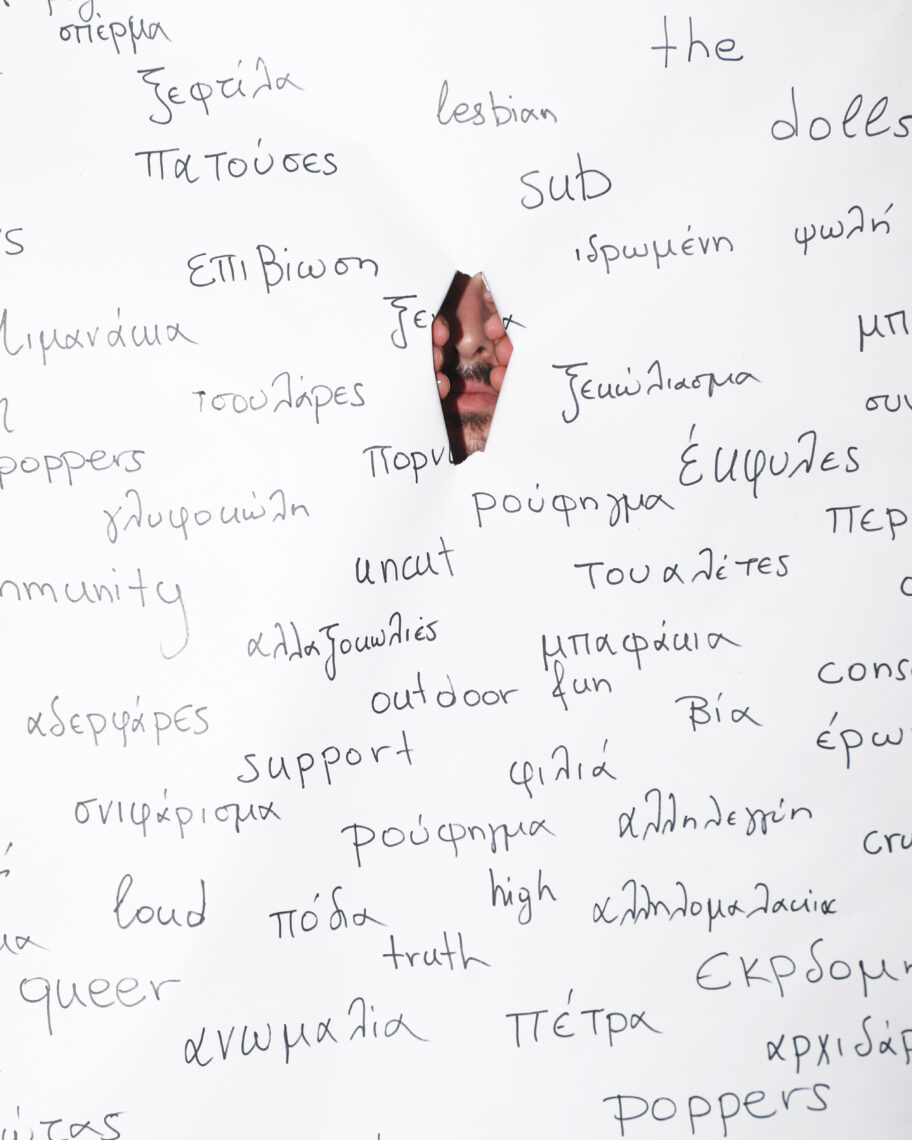 σπέρμα
the
ξεφτίλα
lesbian
dolls
πατούσες
sub
ιδρωμένη ψωλή
επιβίωση
τσουλάρες
ξεκώλιασμα
poppers
έκφυλες
γλυφοκώλη
ρούφηγμα
uncut
τουαλέτες
αλλαξοκωλιές
μπαφάκια
outdoor fun
αδερφάρες
βία
support
φιλιά
σνιφάρισμα
ρούφηγμα
αλληλεγγύη
loud
πόδια
high
αλληλομαλακία
truth
queer
ανωμαλία
πέτρα
poppers